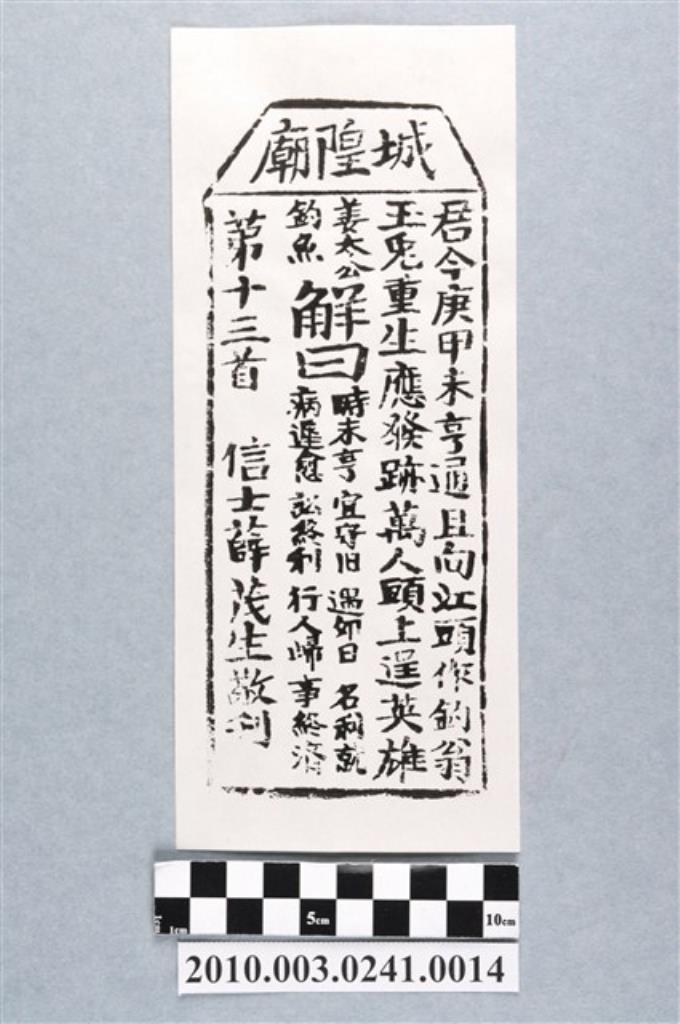 城隍廟
君今庚甲未亨通且向江頭作釣翁
玉兎重生應發跡萬人頭上逞英雄
姜太公釣魚
解曰
時未亨 宜守旧 遇卯日 名利就
病遲愈 訟終利 行人歸 事終濟
第十三首 信士薛茂生敬刊
1cm 5cm 10cm
2010.003.0241.0014